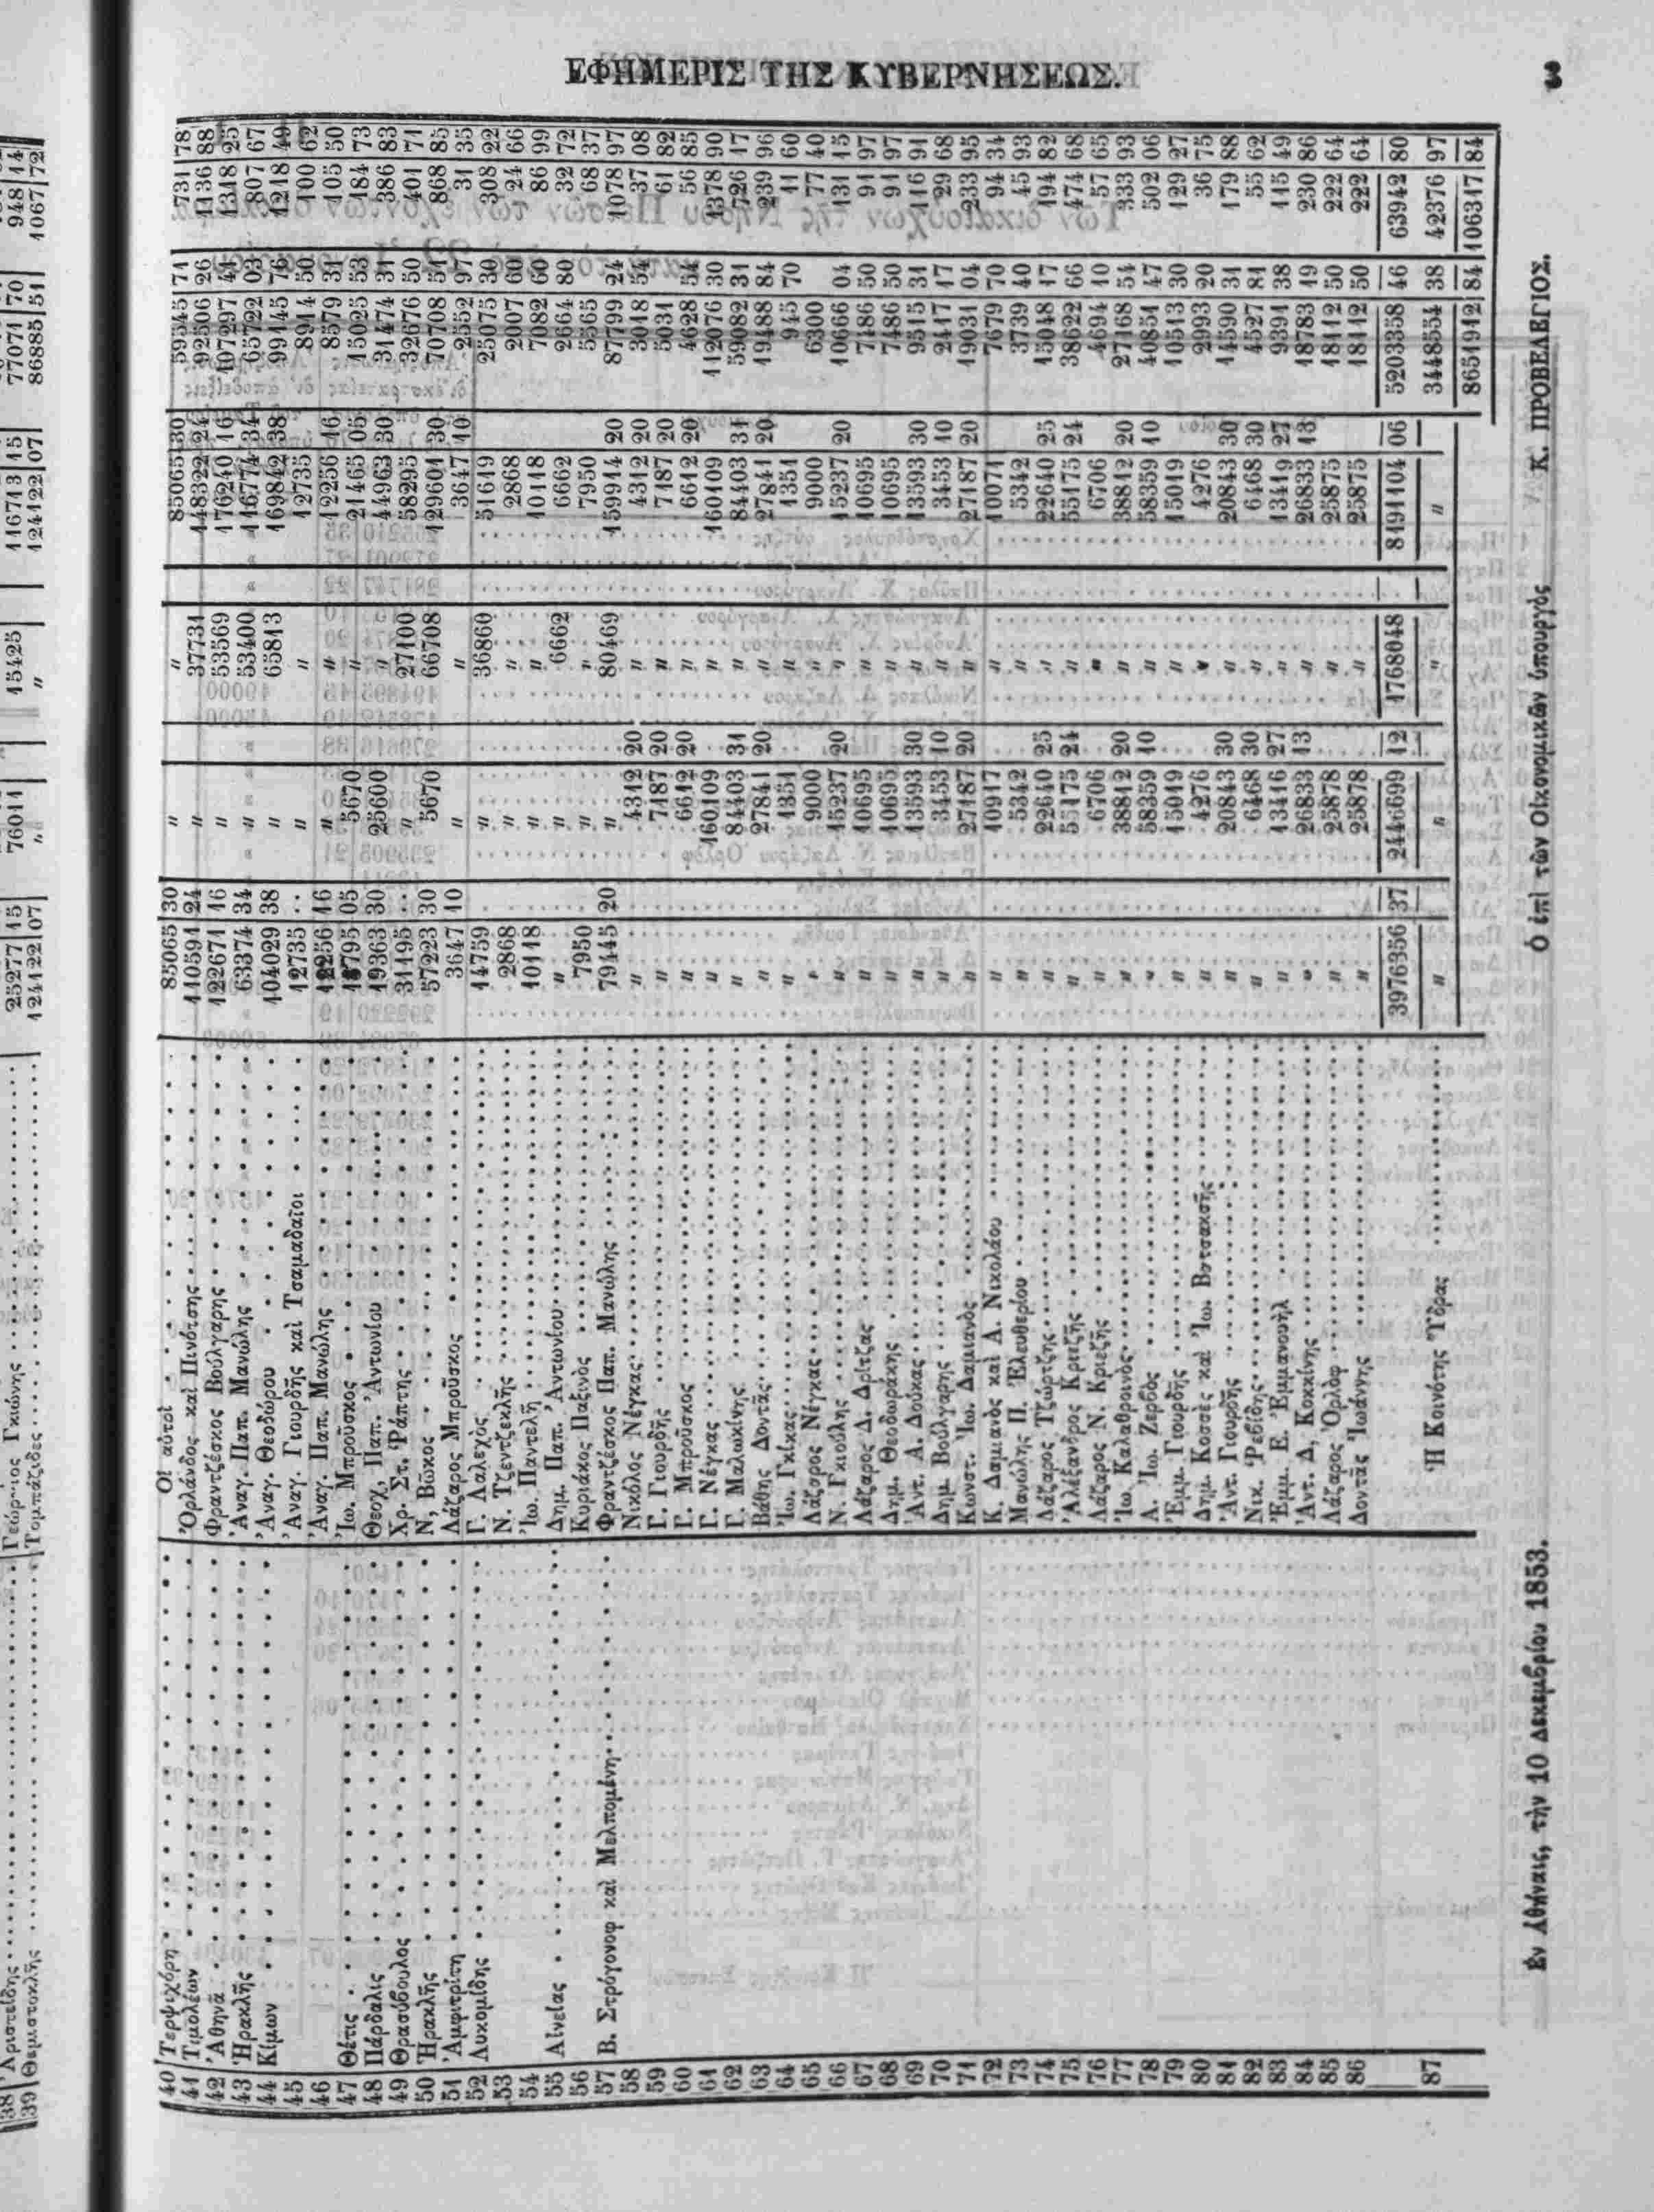 ΕΦΗΜΕΡΙΣ ΤΗΣ ΚΥΒΕΡΝΗΣΕΩΣ. 3
40 Τερψιχόρη Οἱ αὐτοὶ 85065 30 " " 85065 30 59545 71 731 78
41 Τιμολέων Ὀρλάνδος καὶ Πινότσης 110591 24 " 37731 148322 24 92506 26 1136 88
42 Ἀθηνᾶ Φραντζέσκος Βούλγαρης 122671 16 " 53569 176240 16 107297 41 1318 25
43 Ἡρακλῆς Ἀναγ. Παπ. Μανώλης 63374 34 " 53400 116774 34 65722 03 807 67
44 Κίμων Ἀναγ. Θεοδώρου 104029 38 " 65813 169842 38 99145 76 1218 49
45 Ἀναγ. Γιουρδῆς καὶ Τσαμαδαῖοι 12735 " " 12735 8914 50 100 62
46 Ἀναγ. Παπ. Μανώλης 12256 16 " " 12256 16 8579 31 105 50
47 Θέτις Ἰω. Μπροῦσκος 18795 05 5670 " 21465 05 15025 53 184 73
48 Πάρδαλις Θεοχ, Παπ. Ἀντωνίου 19363 30 25600 " 44963 30 31474 31 386 83
49 Θρασύβουλος Χρ. Στ. Ῥάπτης 31195 " 27100 58295 32676 50 401 71
50 Ἡρακλῆς Ν, Βῶκος 57223 30 5670 66708 129601 30 70708 51 868 85
51 Ἀμφιτρίτη Λάζαρος Μπροῦσκος 3647 10 " " 3647 10 2552 97 31 35
52 Λυκομίδης Γ. Λαλεχὸς 14759 " 36860 51619 25075 30 308 22
53 Ν. Τζεντζεκλῆς 2868 " " 2868 2007 60 24 66
54 Ἰω. Παντελῆ 10118 " " 10118 7082 60 86 99
55 Αἰνείας Δημ. Παπ. Ἀντωνίου " " 6662 6662 2664 80 32 72
56 Κυριάκος Παξινὸς 7950 " " 7950 5565 68 37
57 Β. Στρόγονοφ καὶ Μελπομένη Φραντζέσκος Παπ. Μανώλης 79445 20 " 80469 159914 20 87799 24 1078 97
58 Νικόλος Νέγκας " 4312 20 " 4312 20 3018 54 37 08
59 Γ. Γιουρδῆς " 7187 20 " 7187 20 5031 61 82
60 Γ. Μπροῦσκος " 6612 20 " 6612 20 4628 54 56 85
61 Γ. Νέγκας " 160109 " 160109 112076 30 1378 90
62 Γ. Μαλωκίνης " 84403 31 " 84403 31 59082 31 726 17
63 Βάθης Δοντᾶς " 27841 20 " 27841 20 19488 84 239 96
64 Ἰω. Γκίκας " 1351 " 1351 945 70 11 60
65 Λάζαρος Νέγκας " 9000 " 9000 6300 77 40
66 Ν. Γκιούλης " 15237 20 " 15237 20 10666 04 131 15
67 Λάζαρος Δ. Δρίτζας " 10695 " 10695 7486 50 91 97
68 Δημ. Θεοδωράκης " 10695 " 10695 7486 50 91 97
69 Ἀντ. Α. Δούκας " 13593 30 " 13593 30 9515 31 116 91
70 Δημ. Βούλγαρης " 3453 10 " 3453 10 2417 17 29 68
71 Κωνστ. Ἰω. Δαμιανὸς " 27187 20 " 27187 20 19031 04 233 95
72 Κ. Δαμιανὸς καὶ Λ. Νικολάου " 10917 " 10071 7679 70 94 34
73 Μανώλης Π. Ἐλευθερίου " 5342 " 5342 3739 40 45 93
74 Λάζαρος Τζώρτζης " 22640 25 " 22640 25 15048 17 194 82
75 Ἀλέξανδρος Κριεζῆς " 55175 24 " 55175 24 38622 66 474 68
76 Λάζαρος Ν. Κριεζῆς " 6706 " 6706 4694 10 57 65
77 Ἰω. Καλαθρεινὸς " 38812 20 " 38812 20 27168 54 333 93
78 Α. Ἰω. Ζερβὸς " 58359 10 " 58359 10 40851 47 502 06
79 Ἐμμ. Γιουρδῆς " 15019 " 15019 10513 30 129 27
80 Δημ. Κοσσὲς καὶ Ἰω. Βοτσακτῆς " 4276 " 4276 2993 20 36 75
81 Ἀντ. Γιουρδῆς " 20843 30 " 20843 30 14590 31 179 88
82 Νικ. Ῥεβίδης " 6468 30 " 6468 30 4527 81 55 62
83 Ἐμμ. Ε. Ἐμμανουὴλ " 13416 27 " 13419 27 9391 38 115 49
84 Ἀντ. Δ, Κοκκίνης " 26833 13 " 26833 13 18783 19 230 86
85 Λάζαρος Ὀρλὼφ " 25878 " 25875 18112 50 222 64
86 Δοντᾶς Ἰωάννης " 25878 " 25875 18112 50 222 64
3976356 37 2446699 12 1768048 8191104 06 5203358 46 63942 80
87 Ἡ Κοινότης Ὕδρας " " " " 3448554 38 42376 97
8651912 84 106317 84
Ἐν Ἀθήναις, τὴν 10 Δεκεμβρίου 1853.
Ὁ ἐπὶ τῶν Οἰκονομικῶν ὑπουργὸς Κ. ΠΡΟΒΕΛΕΓΙΟΣ.